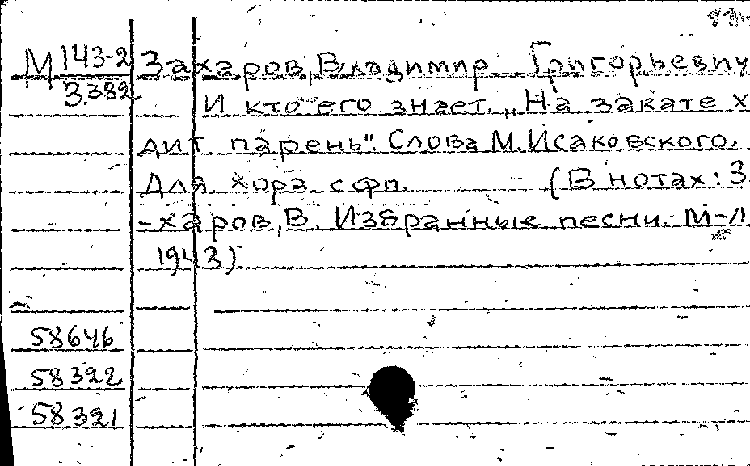 М 143-2 Захаров, Владимир Григорьевич
3382
И кто его знает. „На закате х
дит парень". Слова М. Исаковского.
Для хора с фп. (В нотах: З
-харов, В. Избранные песни. М-Л
1943)
58646
58322
58321